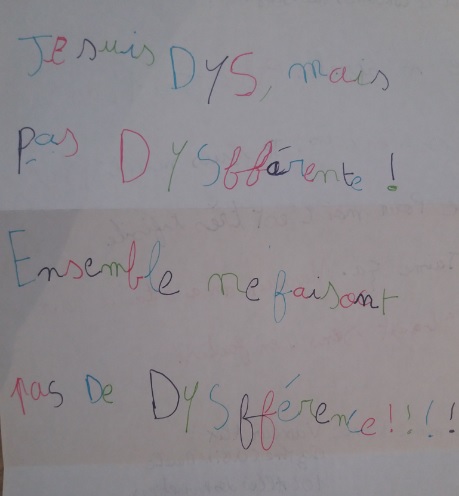 Je suis DYS, mais
pas DYSfférente !
Ensemble ne faisont
pas De DYSfférence!!!!!